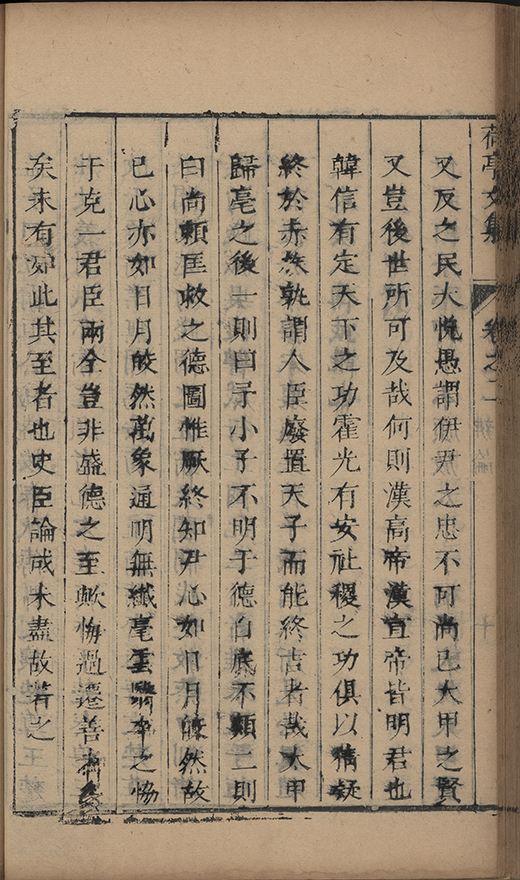 荷亭文集 卷之二
又反之民大悅愚謂伊尹之忠不可尚已大甲之賢
又豈後世所可及哉何則漢高帝漢宣帝皆明君也
韓信有定天下之功霍光有安社稷之功俱以猜疑
終於赤族孰謂人臣廢置天子而能終吉者哉太甲
歸亳之後一則曰予小子不明于德自底不類二則
曰尚賴匡救之德圖惟厥終知尹心如日月皎然故
已心亦如日月皎然萬象通明無纖毫雲翳卒之協
于克一君臣兩全豈非盛德之至歟悔過遷善者
矣未有如此其至者也史臣論或未盡故著之